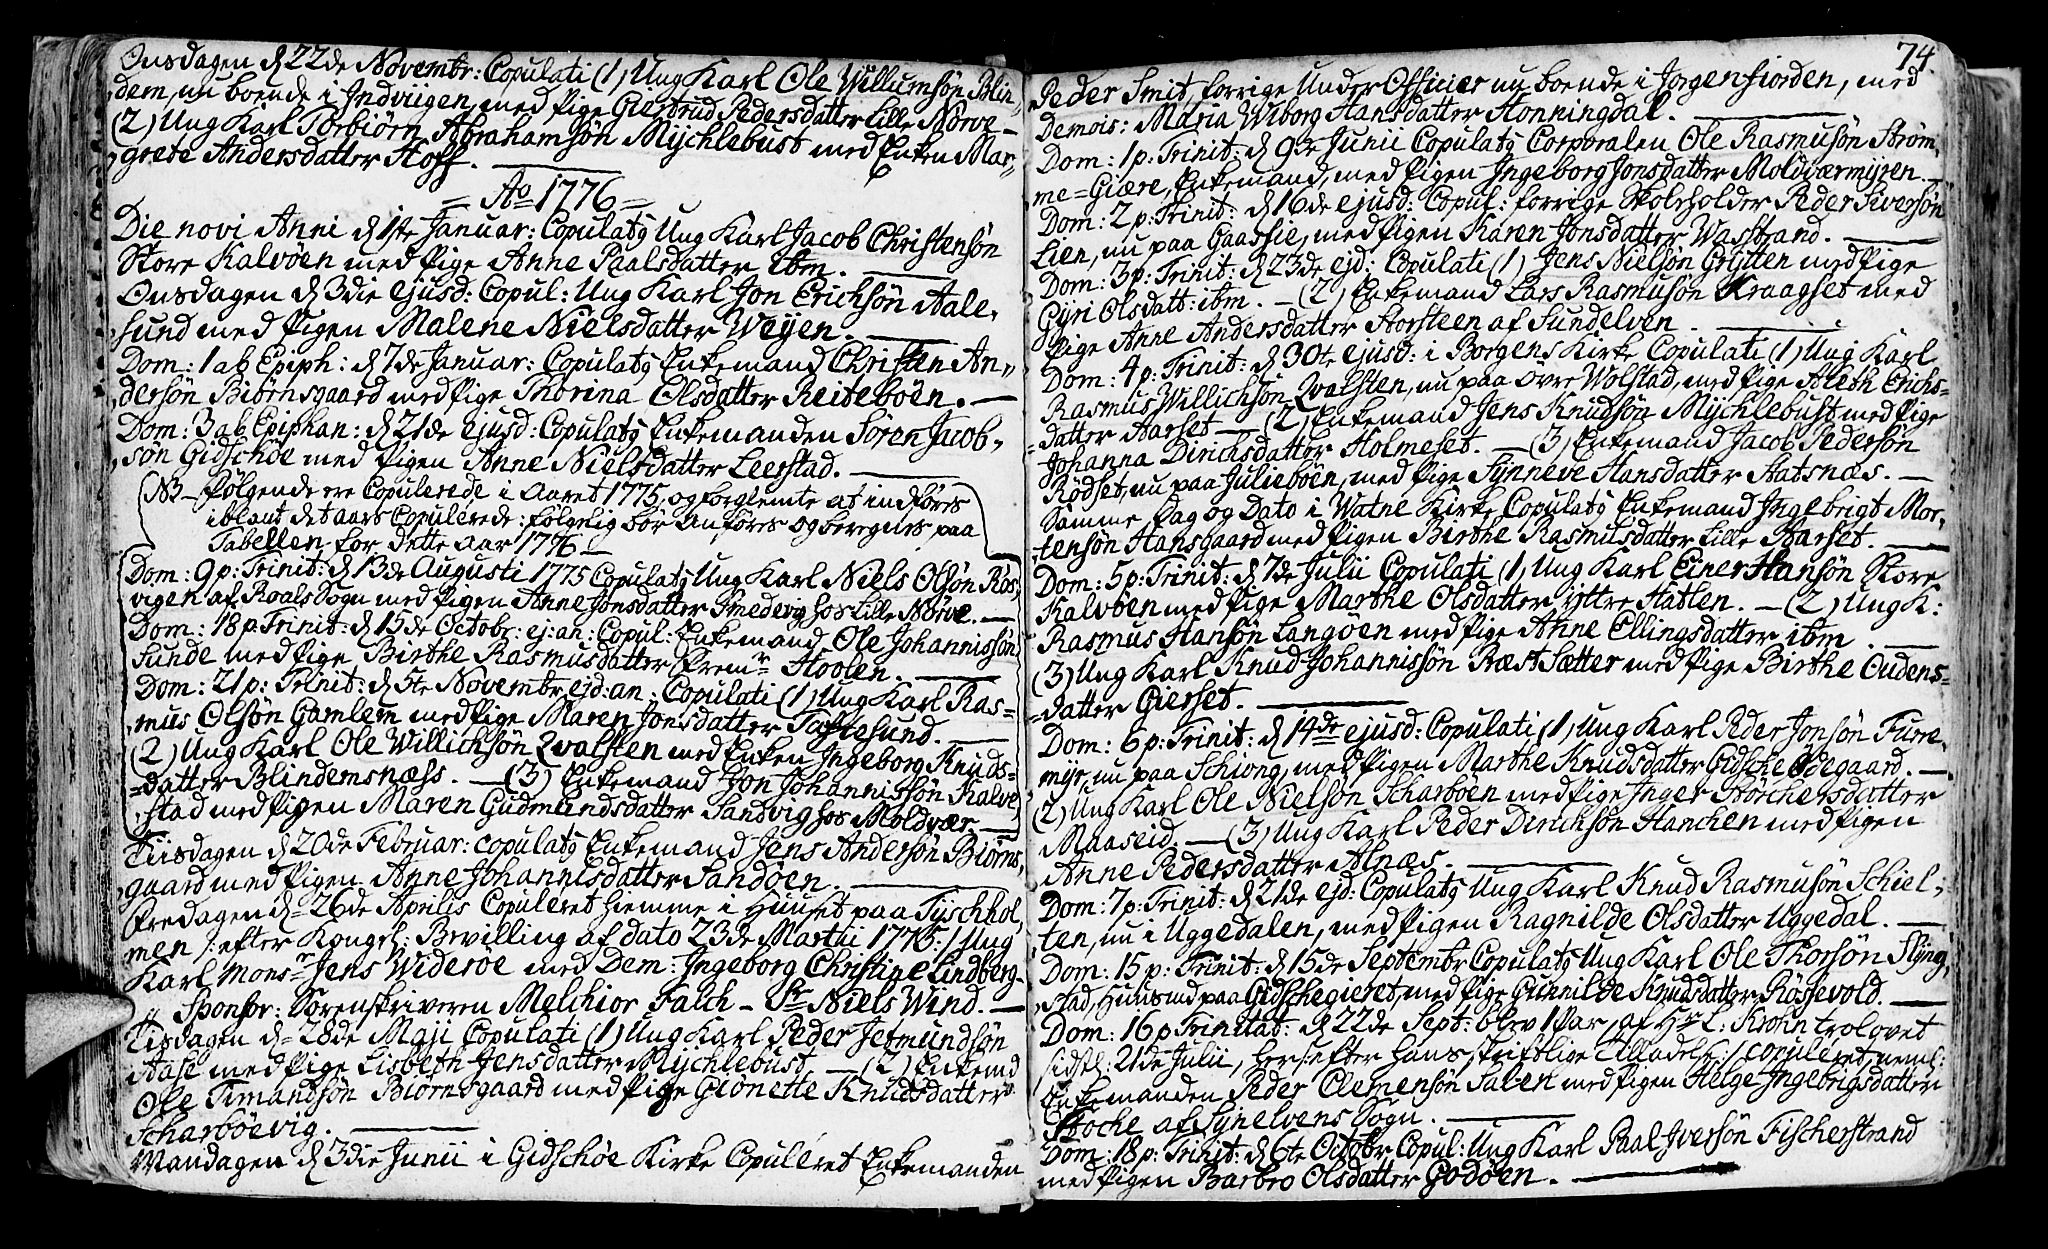 Onsdagen d 22de Novembr: Copulati (1) Ung Karl Ole Willumsøn Blin-
dem, nu boende i Indviigen, med Pige Giertrud Pedersdatter Lille Nørve –
(2) Ung Karl Torbiørn Abrahamsøn Mÿchlebust med Enken Mar-
grete Andersdatter Hoff.
= Ao 1776 =
Die novi Anni d 1ste Januar: Copulatg Ung Karl Jacob Christensøn
Store Kalvøen med Pige Anne Paalsdatter ibm.
Onsdagen d 3die ejusd: Copul: Ung Karl Jon Erichsøn Aale-
sund med Pigen Malene Nielsdatter Weÿen.
Dom: 1 ab Epiph: d 7de Januar: Copulatg Enkemand Christen An-
dersøn Biørnsgaard med Pige Thorina Olsdatter Reitebøen. –
Dom: 3 ab Epiphan: d 21de ejusd: Copulatg Enkemanden Søren Jacob-
søn Gidschøe med Pigen Anne Nielsdatter Leerstad.
NB – følgende ere Copulerede i Aaret 1775, og forglemte at indføres
iblant det aars Copulerede: følgelig bør anføres og beregnes paa
Tabellen for dette aar 1776 –
Dom: 9 p: Trinit: d 13de Augusti 1775 Copulatg Ung Karl Niels Olsøn Røs-
vigen af Roals Sogn med Pigen Anne Jonsdatter Smedevig hos Lille Nørve. –
Dom: 18 p: Trinit: d 15de Octobr: ej: an: Copul: Enkemand Ole Johannissøn
Sunde med Pige Birthe Rasmusdatter Frem Hoolen.
Dom: 21 p: Trinit: d 5te Novembr ejd: an: Copulati (1) Ung Karl Ras-
mus Olsøn Gamlem med Pige Maren Jonsdatter Taftesund.
(2) Ung Karl Ole Willichsøn Qvalsten med Enken Ingeborg Knuds-
datter Blindemsnæss. – (3) Enkemand Jon Johannissøn Kalve
stad med Pigen Maren Gudmundsdatter Sandvig hos Moldvær –
Tiisdagen d 20de Februar: copulatg Enkemand Jens Andersøn Biørns-
gaard med Pigen Anne Johannisdatter Sandøen.
Fredagen d 26de Aprilis Copuleret hiemme i Huuset paa Tÿschhol-
men /: efter Kongel: Bevilling af dato 23de Martii 1776 :/ Ung
Karl Monsr Jens Widerøe med Dem: Ingeborg Christine Lindberg –
,, Sponsor: Sorenskriveren Melchior Falch – Sr Niels Wind. –
Tisdagen d 28de Maji Copulati (1) Ung Karl Peder Jetmundsøn
Aase med Pige Lisbeth Jensdatter Mÿchlebust. – (2) Enkemd
Ole Timandsøn Biørnsgaard med Pige Giønette Knudsdatter
Scharbøevig.
Mandagen d 3die Junii i Gidschøe Kirke Copuleret Enkemanden
74.
Peder Smit, forrige Under Officier nu boende i Jørgenfiorden, med
Demois: Maria Wiborg Hansdatter Honningdal.
Dom: 1 p: Trinit: d 9de Junii Copulatg Corporalen Ole Rasmusøn Strøm-
me-Giære, Enkemand, med Pigen Ingeborg Jonsdatter Moldværmÿren. –
Dom: 2 p: Trinit: d 16de ejusd: Copul: forrige Skoleholder Peder Siversøn
Lien, nu paa Gaassie, med Pigen Karen Jonsdatter Wasstrand.
Dom: 3 p: Trinit: d 23de ejd: Copulati (1) Jens Nielsøn Grÿtten med Pige
Gÿri Olsdatt: ibm. – (2) Enkemand Lars Rasmusøn Kraagset med
Pige Anne Andersdatter Storsteen af Sundelven.
Dom: 4 p: Trinit: d 30te ejusd: i Borgens Kirke Copulati (1) Ung Karl
Rasmus Willichsøn Qvalsten, nu paa Øvre Wolstad, med Pige Aleth Erichs-
datter Aarset – (2) Enkemand Jens Knudsøn Mÿchlebust med Pige
Johanna Dirichsdatter Holmeset. – (3) Enkemand Jacob Pedersøn
Rødset, nu paa Juliebøen, med Pige Sÿnneve Hansdatter Hatsnæs. –
Samme Dag og Dato i Watne Kirke Copulatg Enkemand Ingebrigt Mor-
tensøn Hansgaard med Pigen Birthe Rasmusdatter Lille Aarset. –
Dom: 5 p: Trinit: d 7de Julii Copulati (1) Ung Karl Einer Hansøn Store
Kalvøen med Pige Marthe Olsdatter ÿttre Hatlen. – (2) Ung K:
Rasmus Hansøn Langøen med Pige Anne Ellingsdatter ibm.
(3) Ung Karl Knud Johannissøn Ræst Sætter med Pige Birthe Oudens-
datter Gierset.
Dom: 6 p: Trinit: d 14de ejusd: Copulati (1) Ung Karl Peder Jonsøn Furre-
mÿr, nu paa Schiong, med Pigen Marthe Knudsdatter Gidsche Ødegaard. –
(2) Ung Karl Ole Nielsøn Scharbøen med Pige Inger Størchersdatter
Maaseid. – (3) Ung Karl Peder Dirichsøn Hanchen med Pigen
Anne Pedersdatter Alnæs.
Dom: 7 p: Trinit: d 21de ejd: Copulatg Ung Karl Knud Rasmusøn Schiel-
ten, nu i Uggedalen, med Pigen Ragnilde Olsdatter Uggedal. –
Dom: 15 p: Trinit: d 15de Septembr Copulatg Ung Karl Ole Thorsøn Slÿng-
stad, Huusmd paa Gidschegieret, med Pige Gunnilde Knudsdatter Røssevold. –
Dom: 16 p Trinitat: d 22de Sept: blev 1 Par, af Hr L: Krohn trolovet
sidstl: 21de Julii, her /: efter hans skriftlige Tilladelse :/ copuleret, neml:
Enkemanden Peder Clemensøn Salen med Pigen Helge Ingebrigsdatter
Stoche af Sÿnelvens Sogn.
Dom: 18 p: Trinit: d 6te Octobr Copul: Ung Karl Paal Iversøn Fischerstrand
med Pigen Barbro Olsdatter Godøen. –